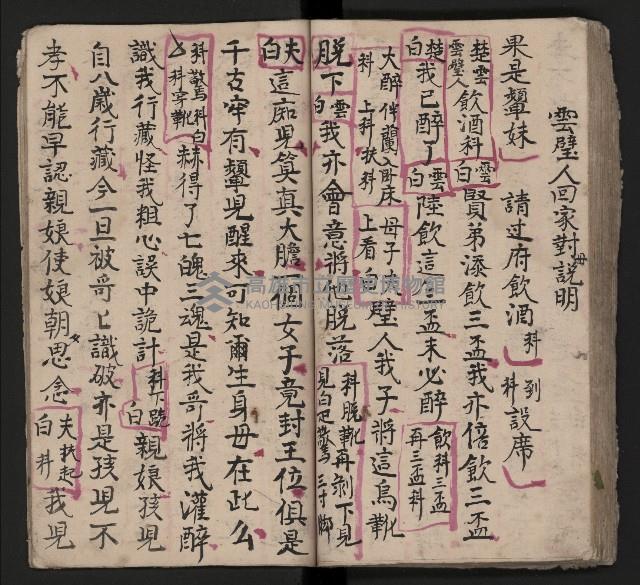 雲璧人回家對母說明
果是顰妹 請过府飲酒 科 到科 設席
楚雲雲璧人 飲酒科 雲白 賢弟添飲三盃我亦倍飲三盃
楚白 我已醉了 雲白 陸飲這三盃未必醉 飲科三盃再三盃科
大醉伴蘭入臥床科 上科扶科 母子 上看白 璧人我子將這烏靴
脫下 雲白 我亦會意將他脫落 科脫靴再剝下見 見白
夫白 這痴児算真大膽一個女子竟封王位俱是
千古罕有顰児醒來可知爾生身母在此么
科驚科白 科穿靴 赫得了七魄三魂是我哥將我灌醉
識我行藏怪我粗心誤中詭計 科下跪白 親娘孩児
自八歲行藏今一旦被哥々識破亦是孩児不
孝不能早認親娘使娘朝夕思念 夫扶起白科 我児
高雄市立歷史博物館
KAOHSIUNG MUSEUM OF HISTORY